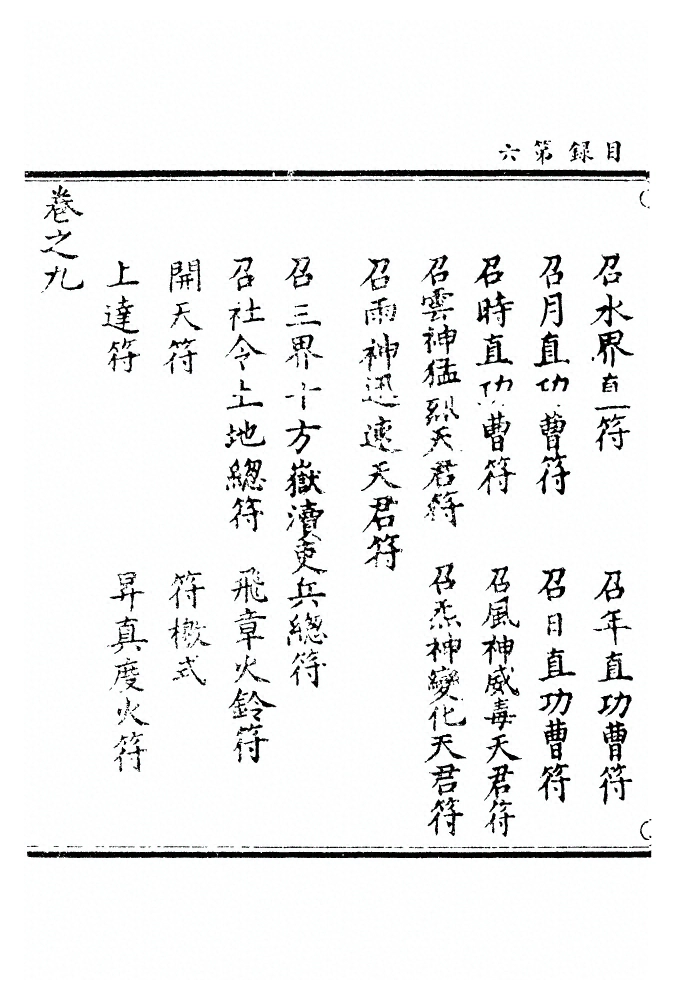 目錄第六
召水界直符　召年直功曹符
召月直功曹符　召日直功曹符
召時直功曹符　召風神威毒天君符
召雲神猛烈天君符　召炁神變化天君符
召雨神迅速天君符
召三界十方嶽瀆吏兵總符
召社令土地總符　飛章火鈴符
開天符　符檄式
上達符　昇真度火符
卷之九